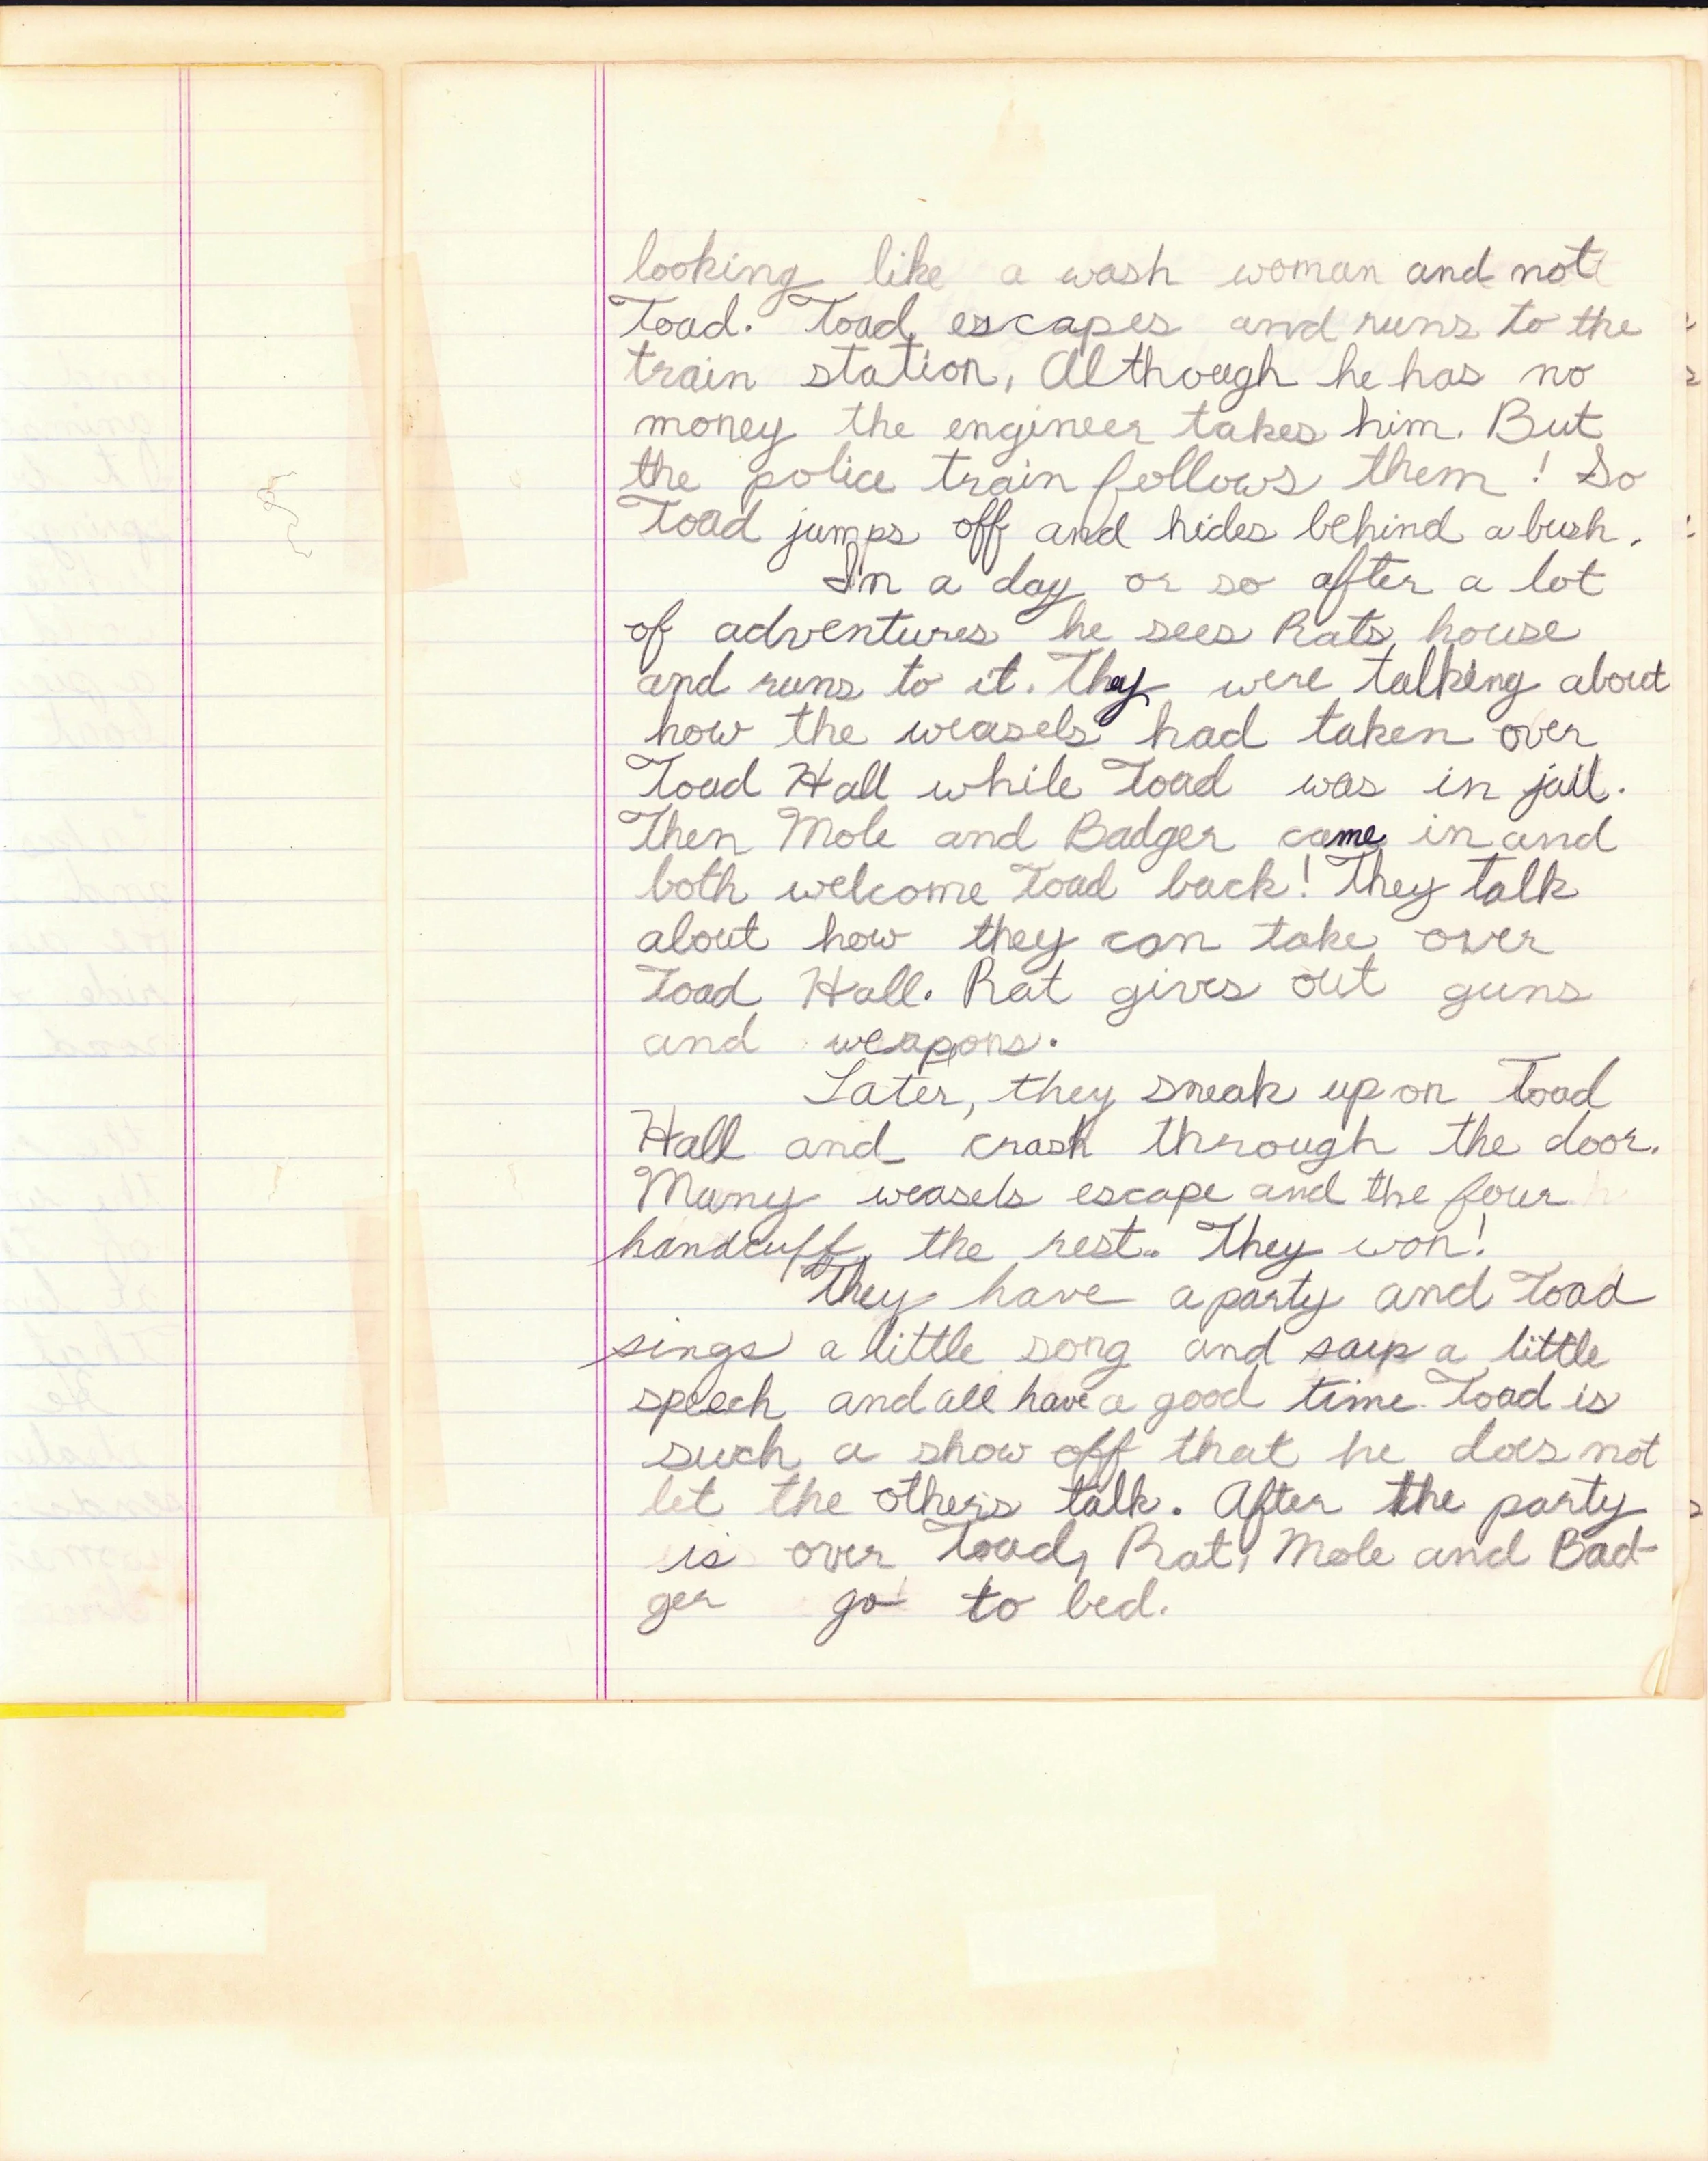 looking like a wash woman and not
Toad. Toad escapes and runs to the
train station. Although he has no
money the engineer takes him. But
the police train follows them! So
Toad jumps off and hides behind a bush.
In a day or so after a lot
of adventures he sees Rats house
and runs to it. They were talking about
how the weasels had taken over
Toad Hall while Toad was in jail.
Then Mole and Badger came in and
both welcome Toad back! They talk
about how they can take over
Toad Hall. Rat gives out guns
and weapons.
Later, they sneak up on Toad
Hall and crash through the door.
Many weasels escape and the four
handcuff the rest. They won!
They have a party and Toad
sings a little song and says a little
speech and all have a good time. Toad is
such a show off that he does not
let the others talk. After the party
is over Toad, Rat, Mole and Bad-
ger go to bed.